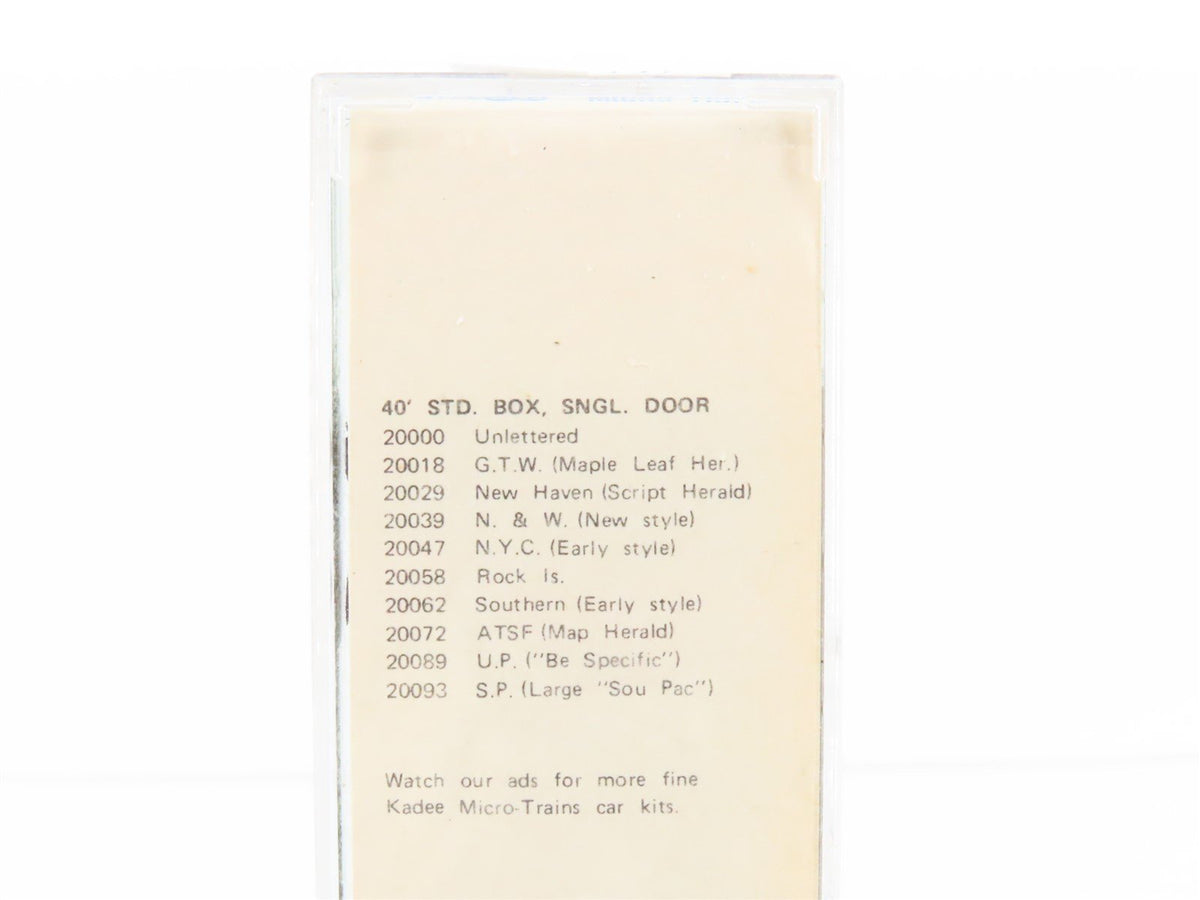 40' STD. BOX, SNGL. DOOR
20000 Unlettered
20018 G.T.W. (Maple Leaf Her.)
20029 New Haven (Script Herald)
20039 N. & W. (New style)
20047 N.Y.C. (Early style)
20058 Rock Is.
20062 Southern (Early style)
20072 ATSF (Map Herald)
20089 U.P. ("Be Specific")
20093 S.P. (Large "Sou Pac")
Watch our ads for more fine
Kadee Micro-Trains car kits.